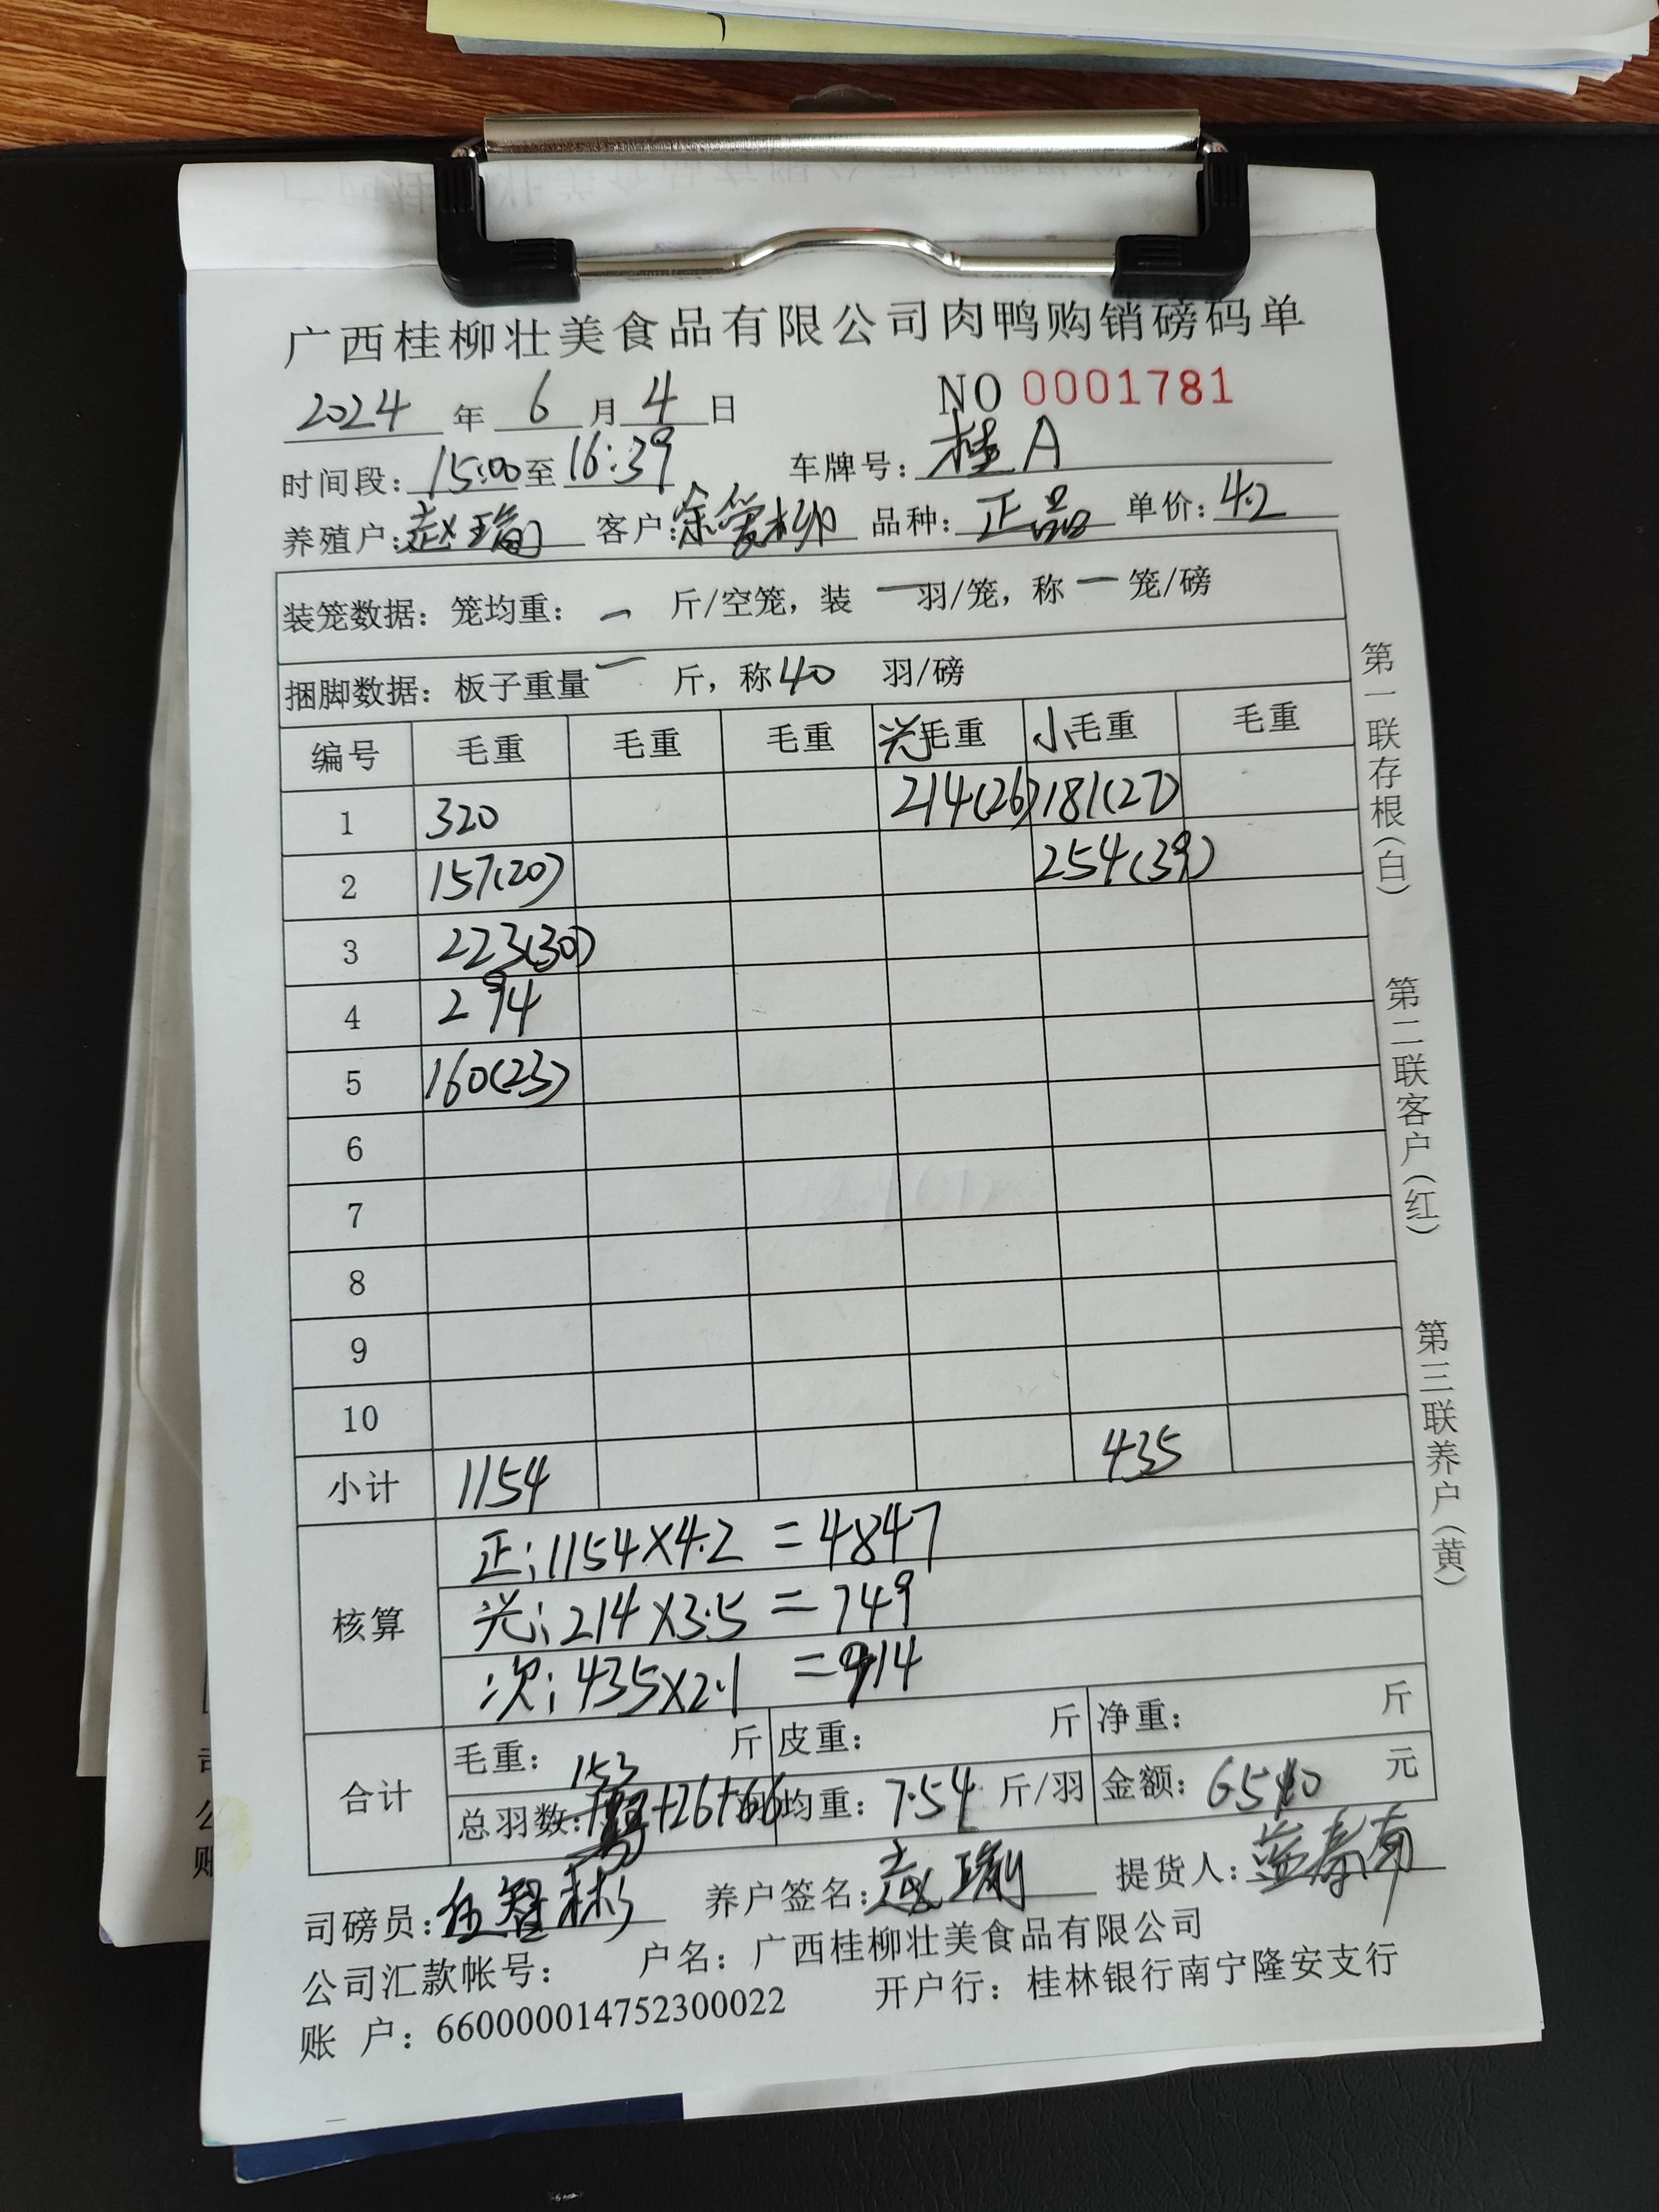 广西桂柳壮美食品有限公司肉鸭购销磅码单
2024 年 6 月 4 日 NO 0001781
时间段: 15:00 至 16:39 车牌号: 桂A
养殖户: 赵瑞 客户: 余爱柳 品种: 正品 单价: 4.2
装笼数据: 笼均重: 一 斤/空笼, 装 一 羽/笼, 称 一 笼/磅
捆脚数据: 板子重量 一 斤, 称 40 羽/磅
编号 毛重 毛重 毛重 光毛重 小毛重 毛重
1 320 214(26) 181(27)
2 157(20) 254(39)
3 223(30)
4 294
5 160(23)
6
7
8
9
10
小计 1154 435
核算
正: 1154×4.2 =4847
光: 214×3.5 =749
次: 435×2.1 =914
合计
毛重: 斤 皮重: 斤 净重: 斤
153
总羽数: +26+66 均重: 7.54 斤/羽 金额: 6510 元
司磅员: 养户签名: 提货人:
公司汇款帐号: 户名: 广西桂柳壮美食品有限公司
账 户: 660000014752300022 开户行: 桂林银行南宁隆安支行
第一联存根(白)
第二联客户(红)
第三联养户(黄)